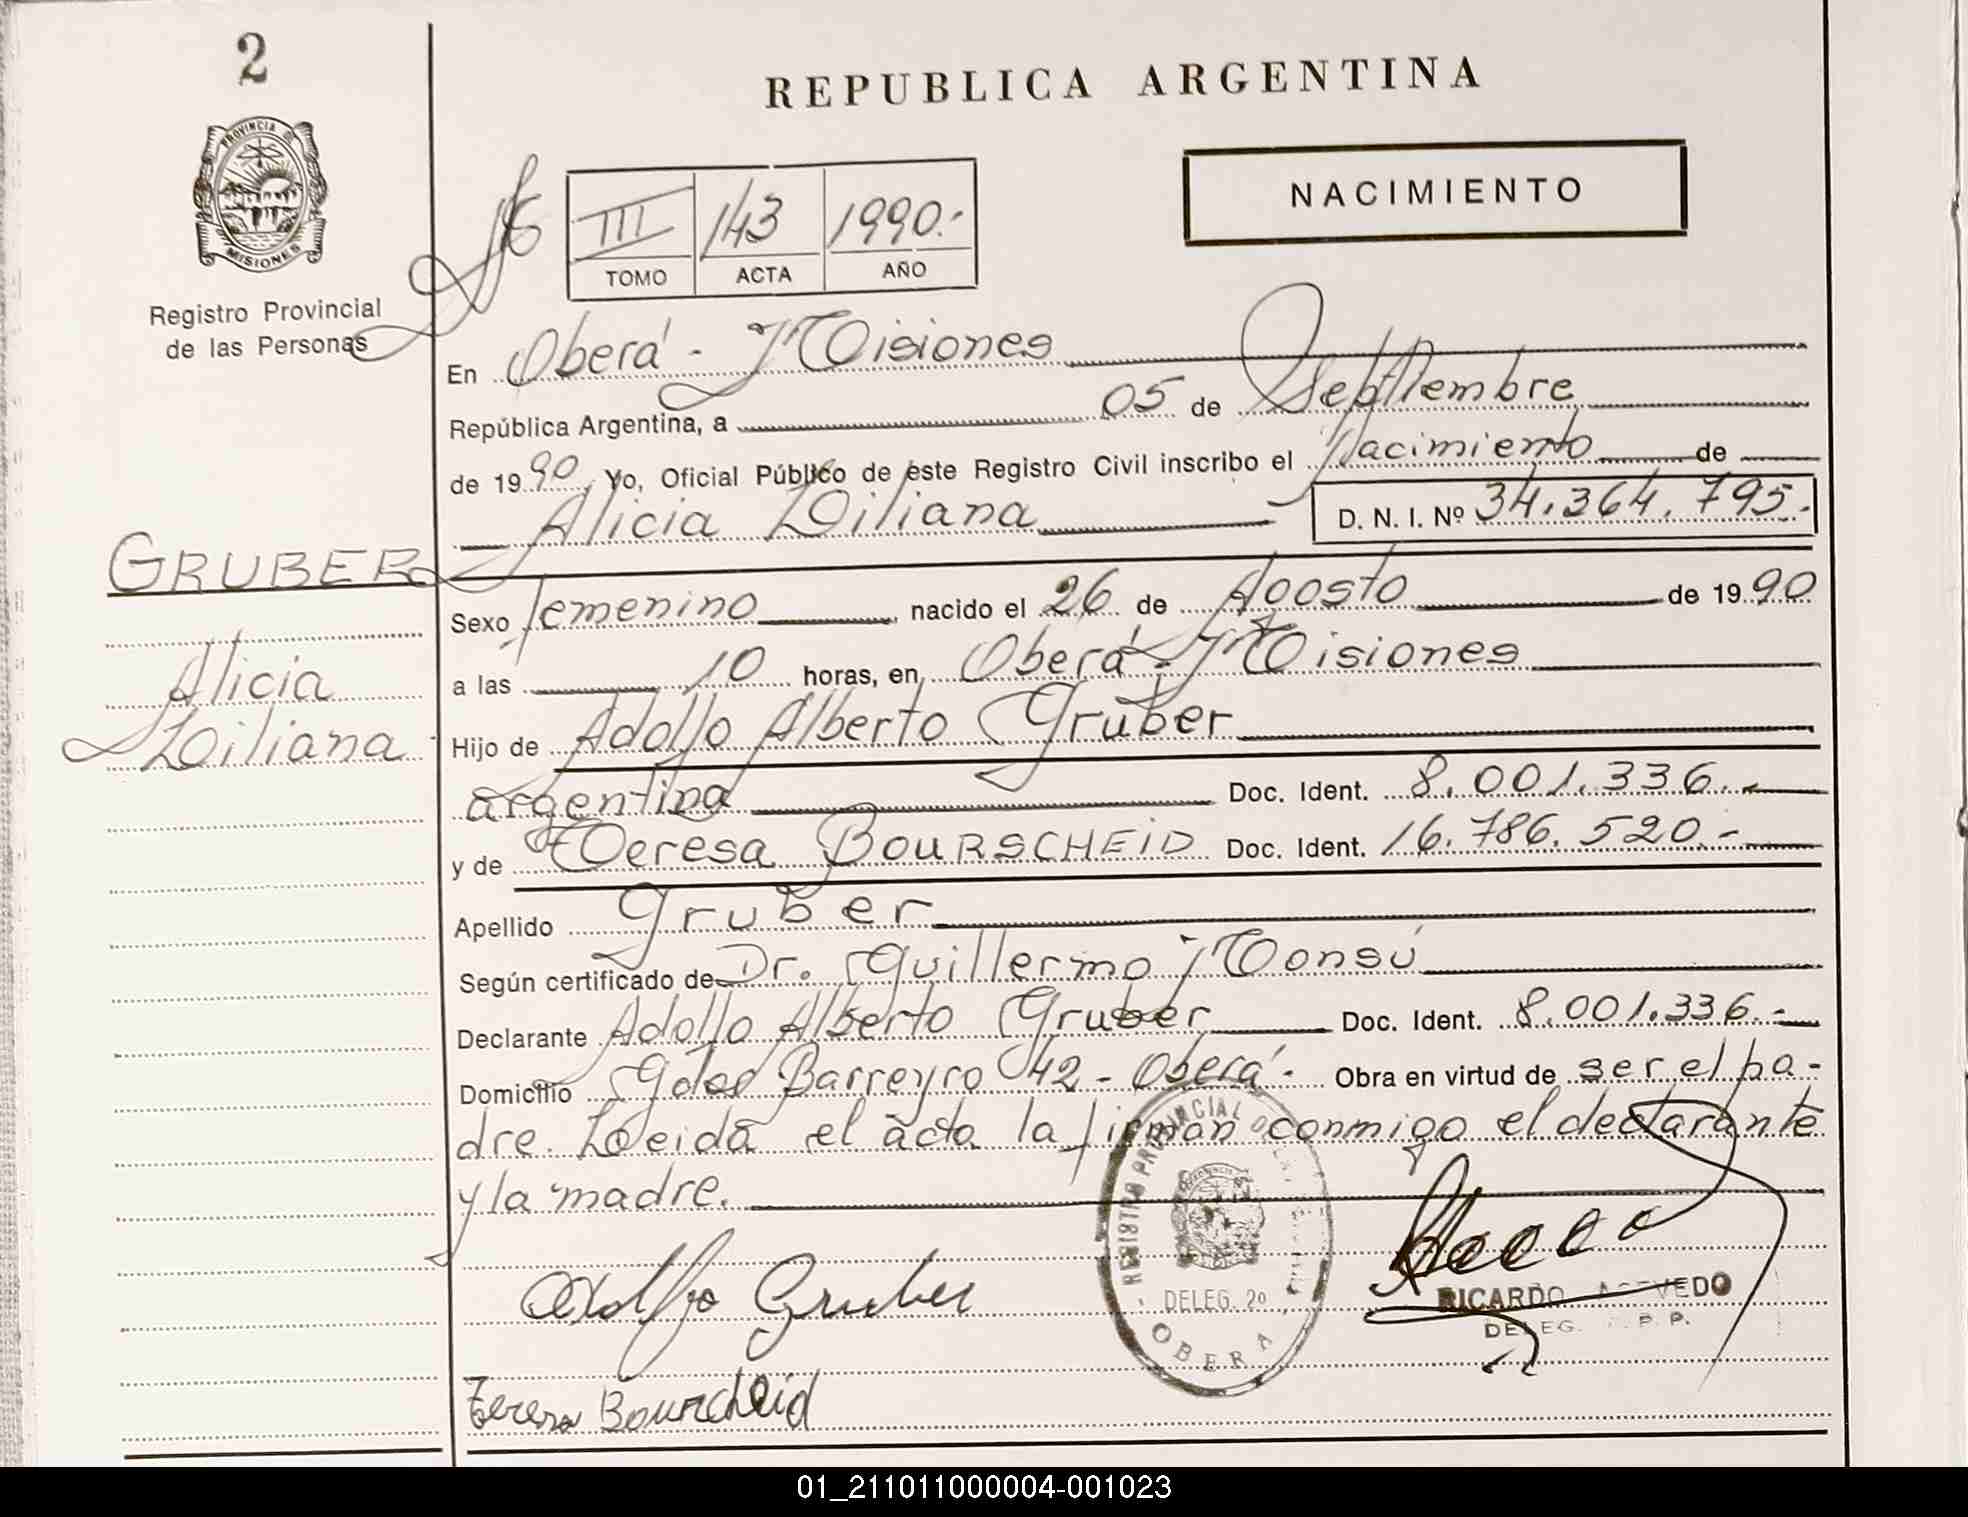 2
REPUBLICA ARGENTINA
PROVINCIA DE
MISIONES
Registro Provincial
de las Personas
III 143 1990.-
TOMO ACTA AÑO
NACIMIENTO
En Oberá - Misiones
República Argentina, a 05 de Septiembre
de 1990 Yo, Oficial Público de este Registro Civil inscribo el Nacimiento de
Alicia Liliana D. N. I. Nº 34.364.795.-
GRUBER
Alicia
Liliana
Sexo femenino, nacido el 26 de Agosto de 1990
a las 10 horas, en Oberá - Misiones
Hijo de Adolfo Alberto Gruber
argentina Doc. Ident. 8.001.336.-
y de Teresa BOURSCHEID Doc. Ident. 16.786.520.-
Apellido Gruber
Según certificado de Dr. Guillermo Monsú
Declarante Adolfo Alberto Gruber Doc. Ident. 8.001.336.-
Domicilio Gdor Barreyro 42 - Oberá - Obra en virtud de ser el pa-
dre. Leida el acta la firman conmigo el declarante
y la madre.
REGISTRO PROVINCIAL DE LAS
DELEG. 2º
OBERA
Adolfo Gruber
RICARDO ACEVEDO
DELEG. R. P. P.
Teresa Bourcheid
01_211011000004-001023